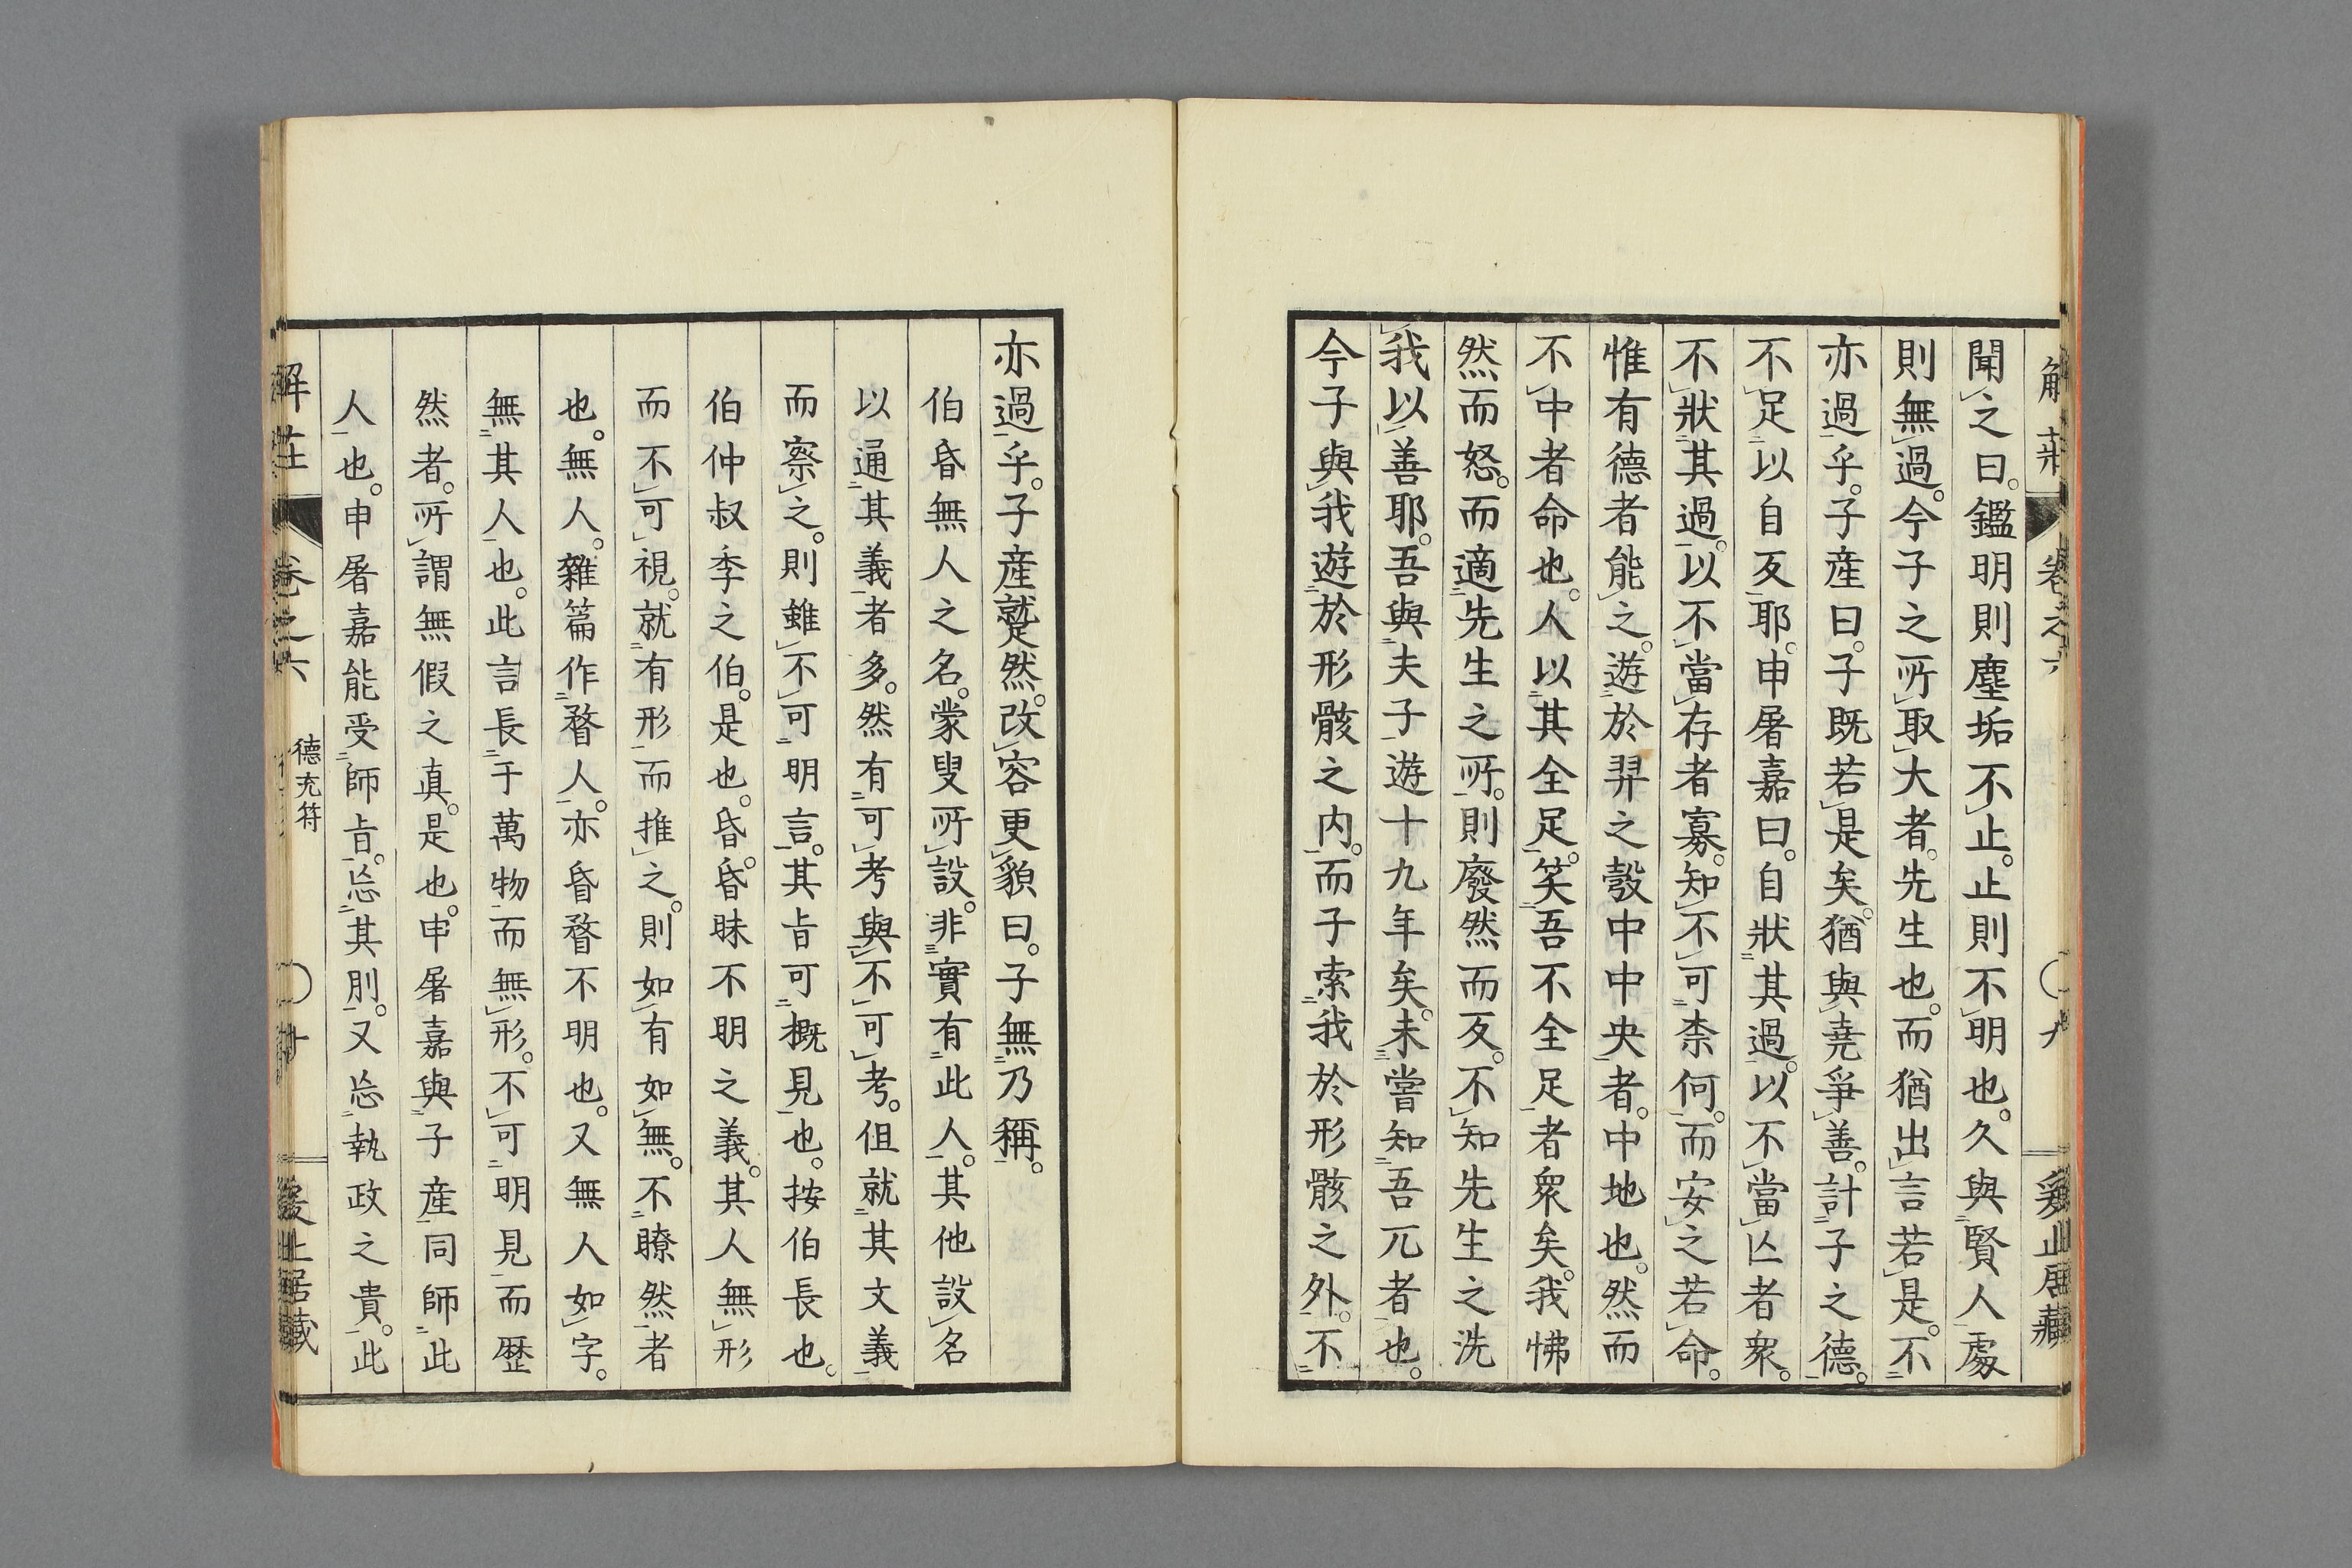 聞之曰。鑑明則塵垢不止。止則不明也。久與賢人處
則無過。今子之所取大者。先生也。而猶出言若是。不
亦過乎。子産曰。子既若是矣。猶與堯爭善。計子之德。
不足以自反耶。申屠嘉曰。自狀其過。以不當亾者衆。
不狀其過。以不當存者寡。知不可柰何。而安之若命。
惟有德者能之。遊於羿之彀中中央者。中地也。然而
不中者命也。人以其全足。笑吾不全足者衆矣。我怫
然而怒。而適先生之所。則廢然而反。不知先生之洗
我以善耶。吾與夫子遊十九年矣。未嘗知吾兀者也。
今子與我遊於形骸之内。而子索我於形骸之外。不
亦過乎。子産蹵然。改容更貌曰。子無乃稱。
伯昏無人之名。蒙叟所設。非實有此人。其他設名
以通其義者多。然有可考與不可考。但就其文義
而察之。則雖不可明言。其旨可概見也。按伯長也。
伯仲叔季之伯。是也。昏。昏昧不明之義。其人無形
而不可視。就有形而推之。則如有如無。不瞭然者
也。無人。雜篇作瞀人。亦昏瞀不明也。又無人如字。
無其人也。此言長于萬物而無形。不可明見而歴
然者。所謂無假之真。是也。申屠嘉與子産同師此
人也。申屠嘉能受師旨。忘其刖。又忘執政之貴。此
解莊 卷之六 德充符 〇十